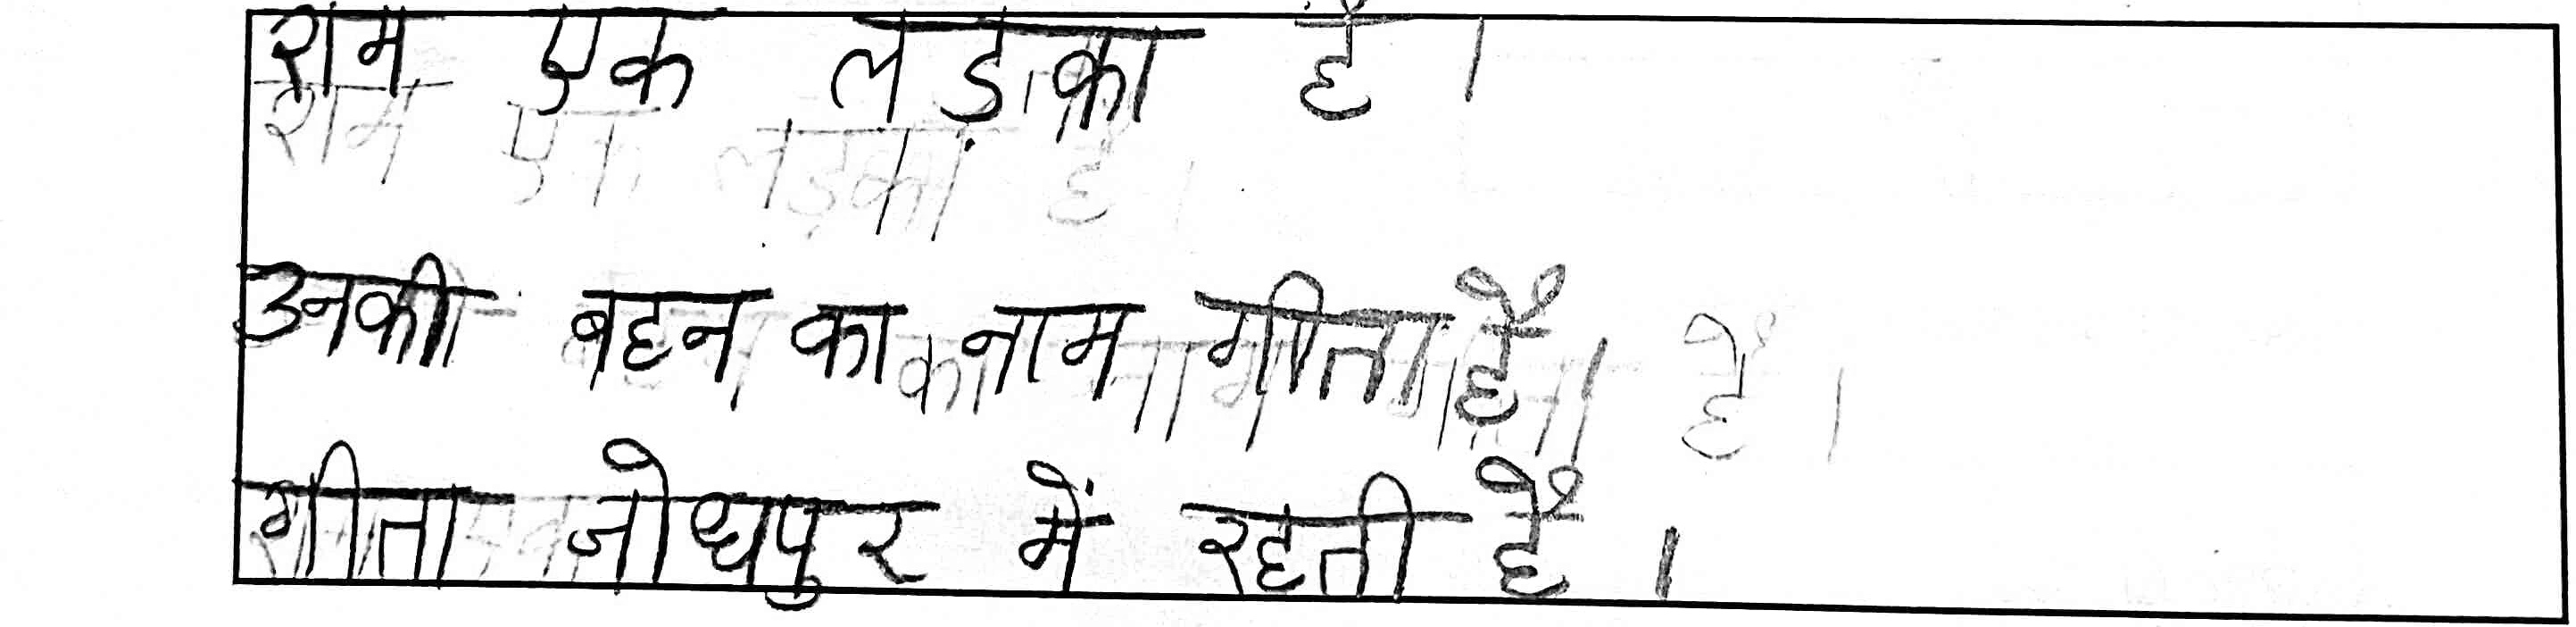 राम एक लड़का है ।
राम एक लड़का है ।
उनकी बहन का नाम गीता है ।
गीता जोधपुर में रहती है ।